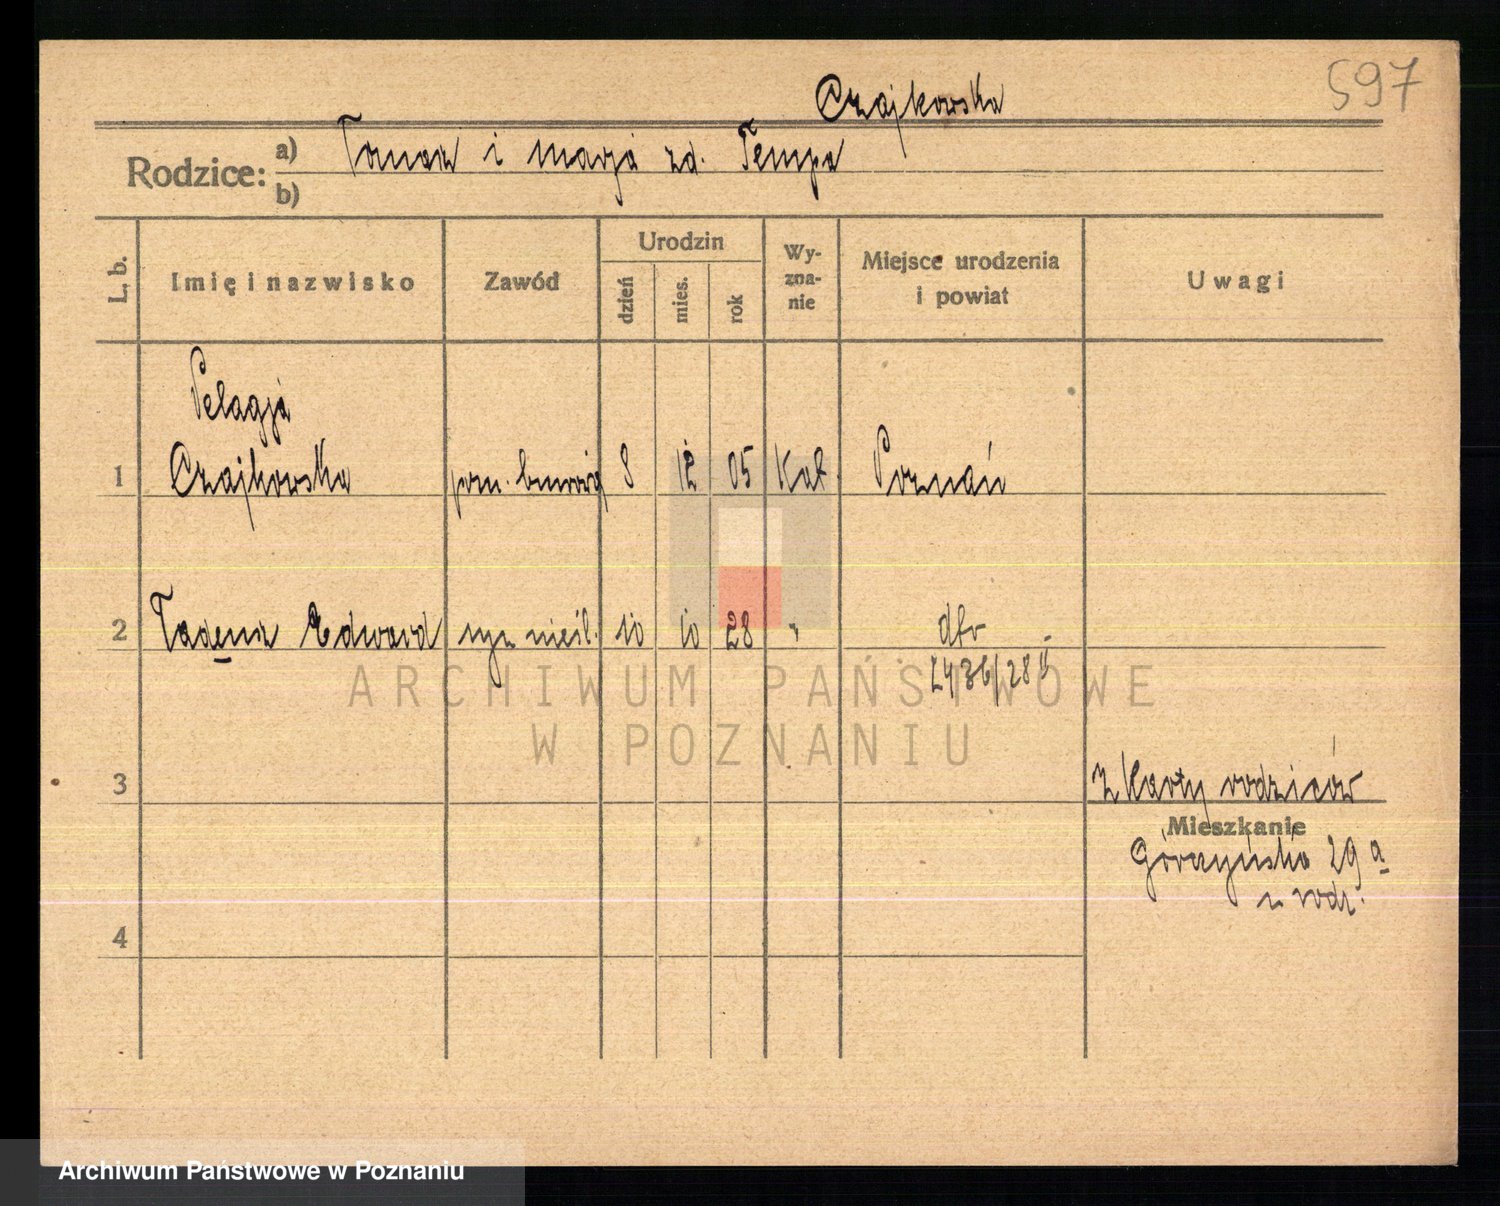 597
Czajkowska
Rodzice: a) Tomasz i Marja zd. Tempa
b)
L. b. Imię i nazwisko Zawód Urodzin dzień mies. rok Wy-zna-nie Miejsce urodzenia i powiat Uwagi
Pelagja
1 Czajkowska pom. biurowa 8 12 05 Kat Poznań
2 Tadeusz Edward syn nieśl. 10 10 28 " dto
2436/28 II
3 z Karty rodziców
Mieszkanie
Górczyńska 29 a
z rodz.
4
ARCHIWUM PAŃSTWOWE
W POZNANIU
Archiwum Państwowe w Poznaniu